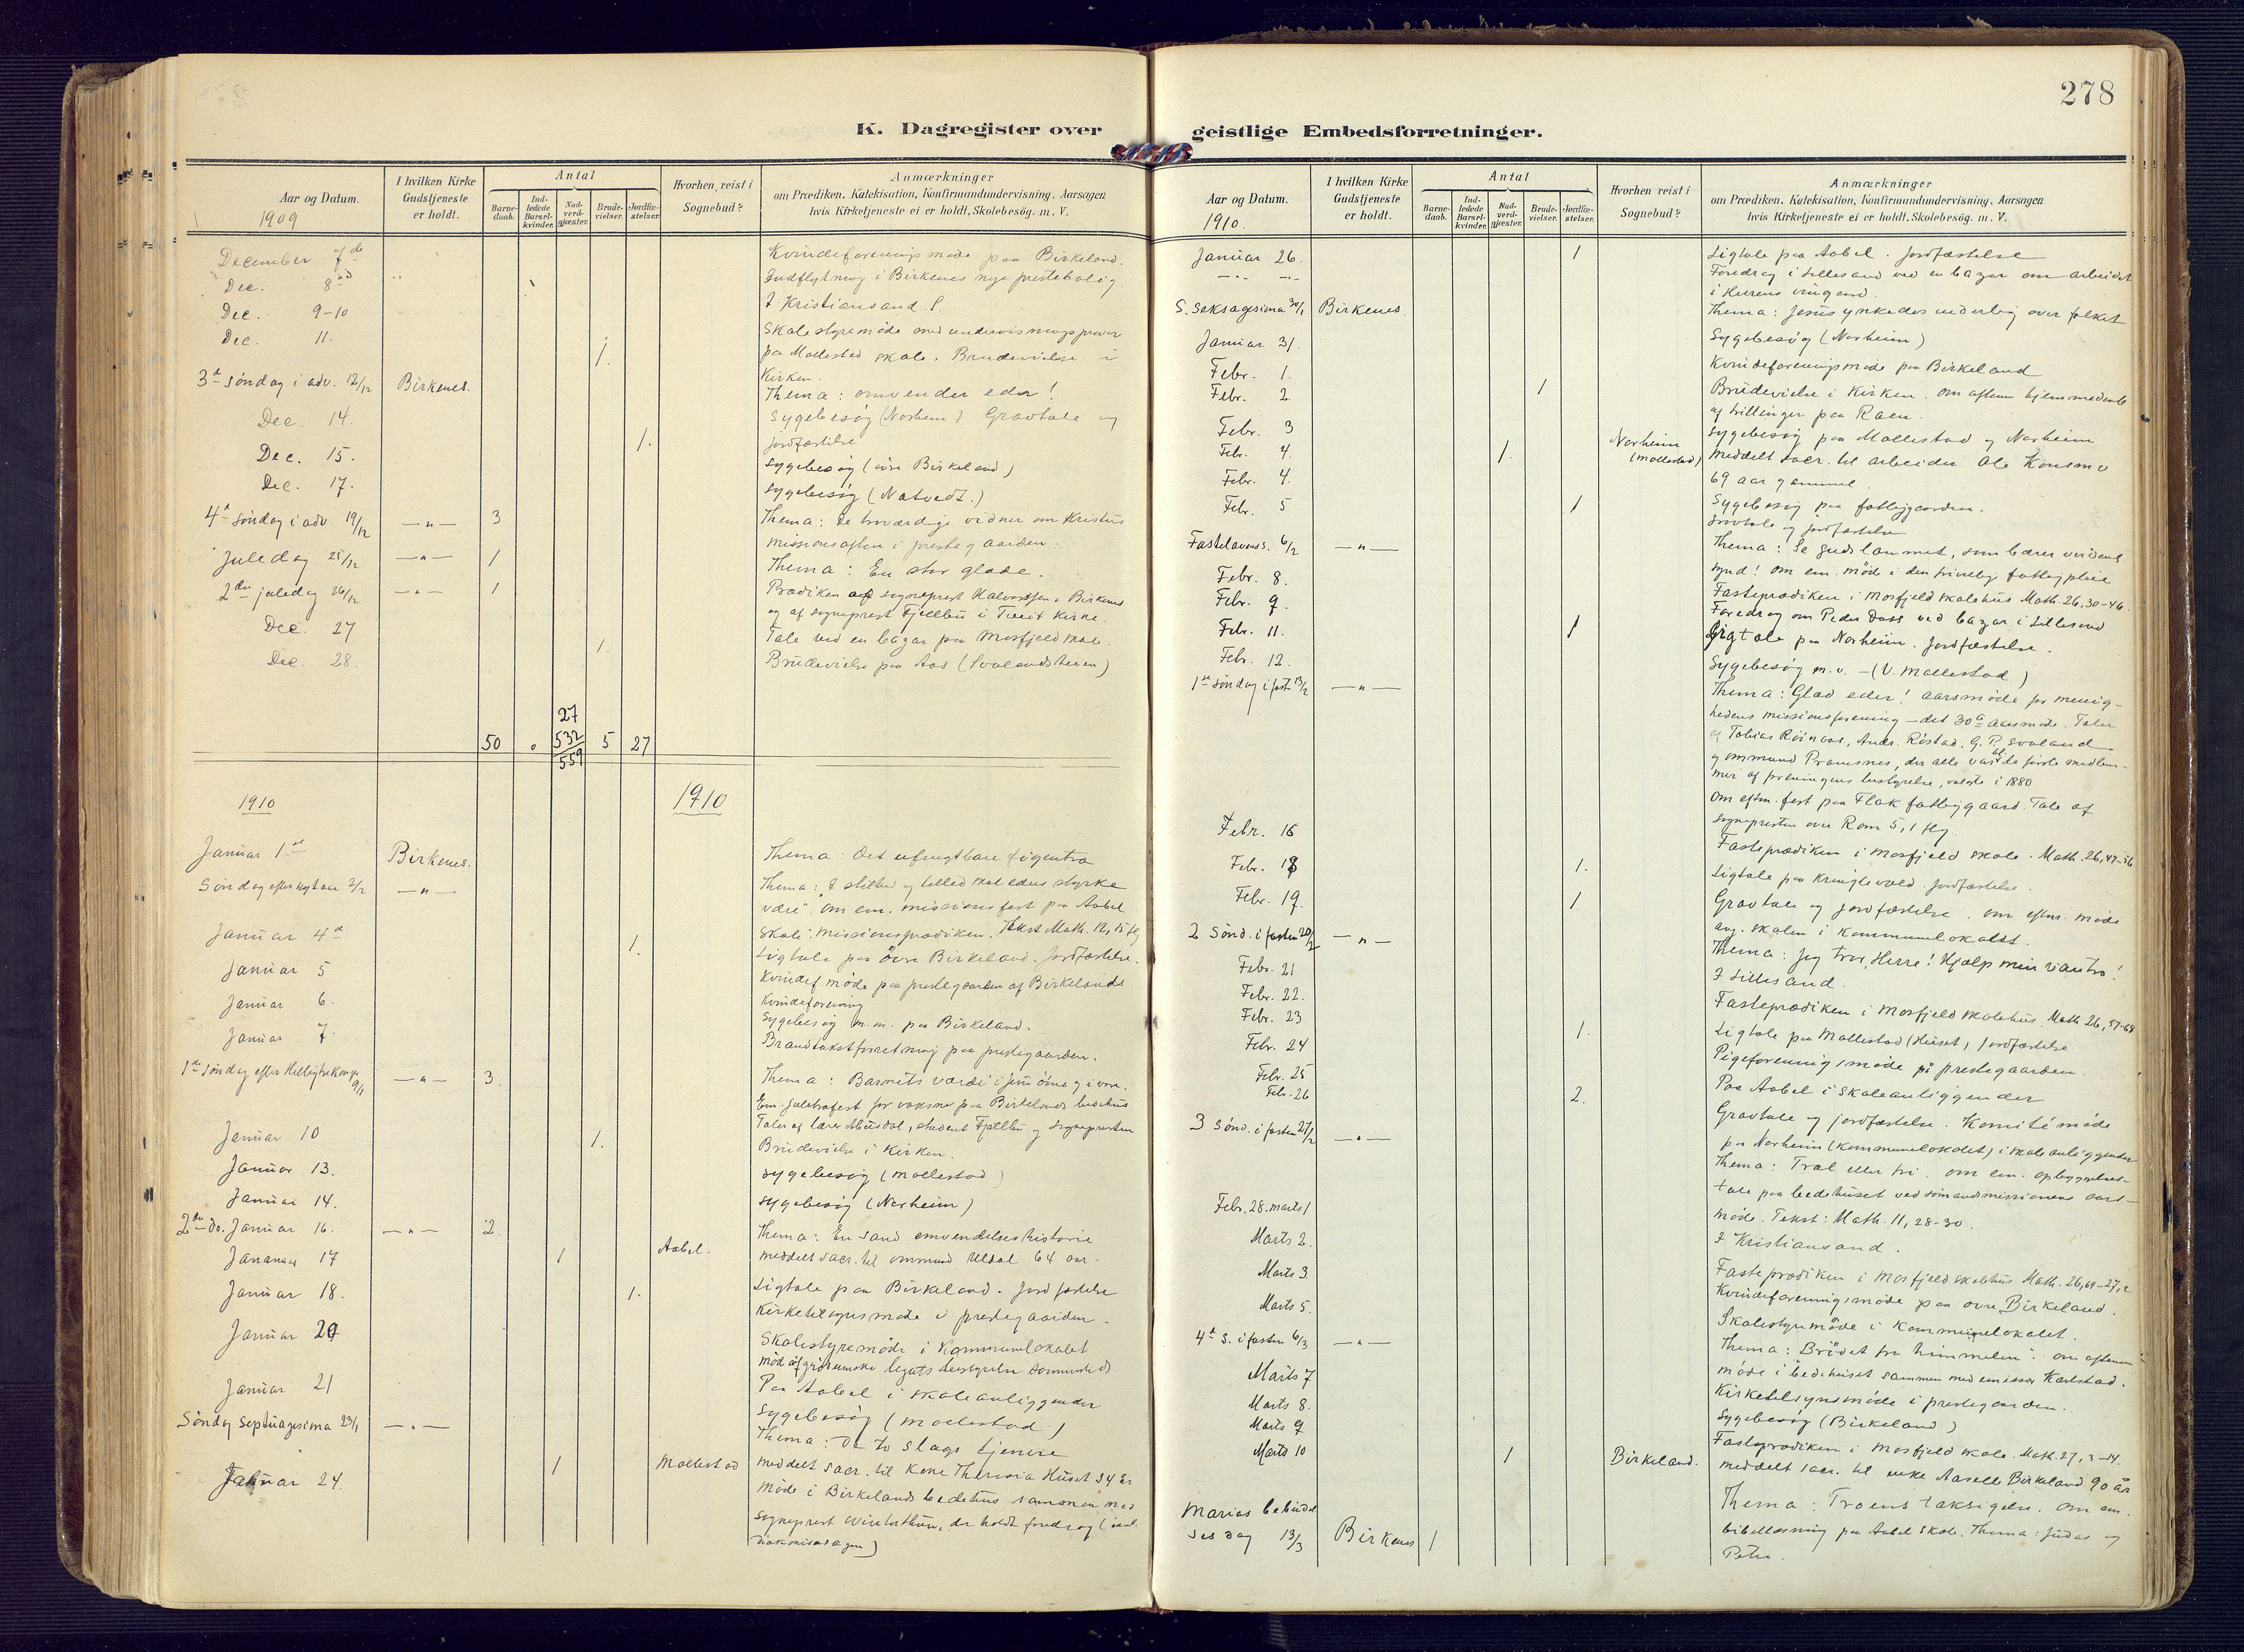 278
K. Dagregister over geistlige Embedsforretninger.
Aar og Datum.
1909
I hvilken Kirke Gudstjeneste er holdt.
Antal
Barnedaab.
Indledede Barselkvinder.
Nadverdgjæster.
Brudevielser.
Jordfæstelser.
Hvorhen reist i Sognebud?
Anmærkninger
om Prædiken, Katekisation, Konfirmandundervisning, Aarsagen
hvis Kirketjeneste ei er holdt, Skolebesög. m. V.
December 7de Kvindeforeningsmøde paa Birkeland.
Dec. 8de Indflytning i Birkenes nye prestebolig.
Dec. 9-10 I Kristiansand S.
Dec. 11. 1. Skolestyremøde med undervisningsprøver
paa Mollestad skole. Brudevielse i
Kirken.
3d søndag i adv. 12/12 Birkenes. Thema: omvender eder!
Dec. 14. 1. Sygebesøg (Norheim) Gravtale og
jordfæstelse
Dec. 15. Sygebesøg (øvre Birkeland)
Dec. 17. Sygebesøg (Natvedt.)
4d søndag i adv. 19/12 —"— 3 Thema: De troværdige vidner om Kristus
missionsaften i prestegaarden.
Juledag 25/12 —"— 1 Thema: En stor glæde.
2den juledag 26/12 —"— 1 Prædiken af sogneprest Halvorssen i Birkenes
og af sogneprest Fjellbu i Tveit Kirke.
Dec. 27 Tale ved en bazar paa Mosfjeld skole.
Dec. 28. 1. Brudevielse paa Aas (Svalandsheien)
27
50 0 532 5 27
559
1910
1910
Januar 1st Birkenes. Thema: Det ufrugtbare figentræ
Søndag efter nytaar 2/1 —"— Thema: "I stilhed og tillid skal eders styrke
være". Om em. missionsfest paa Aabel
skole: missionsprædiken. Tekst Math. 12, 15 flg
Januar 4d 1. Ligtale paa øvre Birkeland. Jordfæstelse.
Januar 5 Kvindef. møde paa prestegaarden af Birkelands
Kvindeforening
Januar 6. Sygebesøg m.m. paa Birkeland.
Januar 7. Brandtakstforretning paa prestegaarden.
1ste søndag efter Helligtrekonger 9/1 —"— 3. Thema: Barnets værdi i Jesu øine og i vore.
Em. juletræfest for voksne paa Birkelands bedehus
Taler af lærer Abusdal, student Fjellbu og sognepresten
Januar 10 1. Brudevielse i Kirken.
Januar 13. Sygebesøg (Mollestad)
Januar 14. Sygebesøg (Norheim)
2den Do. Januar 16. —"— 2. Thema: En sand omvendelseshistorie
Januar 17 1 Aabel. meddelt sacr. til Ommund Uldal 64 aar.
Januar 18. 1. Ligtale paa Birkeland. Jordfæstelse
Kirketilsynsmøde i prestegaarden.
Januar 20 Skolestyremøde i Kommunelokalet
legats bestyrelse sammesteds
Januar 21 Paa Aabel i skoleanliggender
Sygebesøg (Mollestad)
Søndag Septuagesima 23/1 —"— Thema: De to slags tjenere
Januar 24. 1 Mollestad meddelt sacr. til Kone Theresia Huset 34 år
Møde i Birkelands bedehus sammen med
sogneprest Winterthun, der holdt foredrag (
diakonisedagen)
Aar og Datum.
1910.
I hvilken Kirke Gudstjeneste er holdt.
Antal
Barnedaab.
Indledede Barselkvinder.
Nadverdgjæster.
Brudevielser.
Jordfæstelser.
Hvorhen reist i Sognebud?
Anmærkninger
om Prædiken, Katekisation, Konfirmandundervisning, Aarsagen
hvis Kirketjeneste ei er holdt, Skolebesög. m. V.
Januar 26. 1 Ligtale paa Aabel. Jordfæstelse
—"— —"— Foredrag i Lillesand ved en bazar om arbeidet
i Herrens vingaard.
S. Seksagesima 30/1 Birkenes. Thema: Jesus ynkedes inderlig over folket
Januar 31. Sygebesøg (Norheim)
Febr. 1. Kvindeforeningsmøde paa Birkeland
Febr. 2. 1 Brudevielse i Kirken. Om aftenen hjemmedaab
af trillinger paa Raen.
Febr. 3 Sygebesøg paa Mollestad og Norheim
Febr. 4. 1. Norheim (Mollestad) meddelt sacr. til arbeider Ole Konsmo
69 aar gammel.
Febr. 4. Sygebesøg paa fattiggaarden.
Febr. 5 1 Gravtale og jordfæstelse
Fastelavenss. 6/2 —"— Thema: Se Guds lammet, som bærer verdens
synd! Om em. møde i den frivillige fattigpleie
Febr. 8. Fasteprædiken i Mosfjeld skolehus Math. 26, 30-46.
Febr. 9. Foredrag om Peder Dass ved bazar i Lillesand
Febr. 11. 1 Ligtale paa Norheim. Jordfæstelse.
Febr. 12. Sygebesøg m.v. — (V. Mollestad)
1ste søndag i fast. 13/2 —"— Thema: Glæd eder! Aarsmøde for menighedens
missionsforening — det 30te aarsmøde. Taler
af Tobias Røinaas, Andr. Røstad, G. P. Svaland
og Ommund Framnes, der alle var bl. de første medlemmer
af foreningens bestyrelse, valgte i 1880
Om eftm. fest paa Flak fattiggaard. Tale af
sognepresten over Rom 5, 1 flg.
Febr. 16 Fasteprædiken i Mosfjeld skole. Math. 26, 47-56
Febr. 18 1. Ligtale paa Kringlevold. Jordfæstelse.
Febr. 19. 1. Gravtale og jordfæstelse. Om eftm. møde
ang. skolen i Kommunelokalet.
2 Sønd. i fasten 20/2 —"— Thema: Jeg tror, Herre! Hjælp min vantro!
Febr. 21 I Lillesand.
Febr. 22. Fasteprædiken i Mosfjeld skolehus. Math 26, 57-68
Febr. 23 1. Ligtale paa Mollestad (Huset) Jordfæstelse
Febr. 24 Pigeforeningsmøde på prestegaarden.
Febr. 25 Paa Aabel i skoleanliggender
Febr. 26 2. Gravtale og jordfæstelse. Komitémøde
paa Norheim (kommunelokalet) i skoleanliggender
3 Sønd. i fasten 27/2 —"— Thema: Træl eller fri. Om em. opbyggelsestale
paa bedehuset ved sømandsmissionens aarsmøde.
Tekst: Math. 11, 28-30.
Febr. 28. marts 1 I Kristiansand.
Marts 2. Fasteprædiken i Mosfjeld skolehus Math. 26, 69-27, 2
Marts 3. Kvindeforeningsmøde paa øvre Birkeland.
Marts 5. Skolestyremøde i Kommunelokalet.
4d S. i fasten 6/3 —"— Thema: Brødet fra himmelen. Om aftenen
møde i bedehuset sammen med emissær Karlstad.
Marts 7 Kirketilsynsmøde i prestegaarden.
Marts 8. Sygebesøg (Birkeland)
Marts 9 Fasteprædiken i Mosfjeld skole. Math. 27, 3-14.
Marts 10 1 Birkeland. meddelt sacr. til enke Aaselle Birkeland 90 år
Marias bebudelsesdag 13/3 Birkenes 1 Thema: Troens taksigelse. Om em.
bibellæsning paa Aabel skole. Thema: Judas og
Peter.